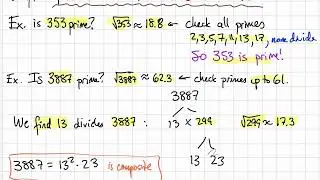 Ex. is 353 prime? √353 ≈ 18.8 ← check all primes
2,3,5,7,11,13,17, none divide
So 353 is prime!
Ex. Is 3887 prime? √3887 ≈ 62.3 ← check primes up to 61.
3887
We find 13 divides 3887 : 13 × 299 √299 ≈ 17.3
13 23
3887 = 13² · 23 is composite